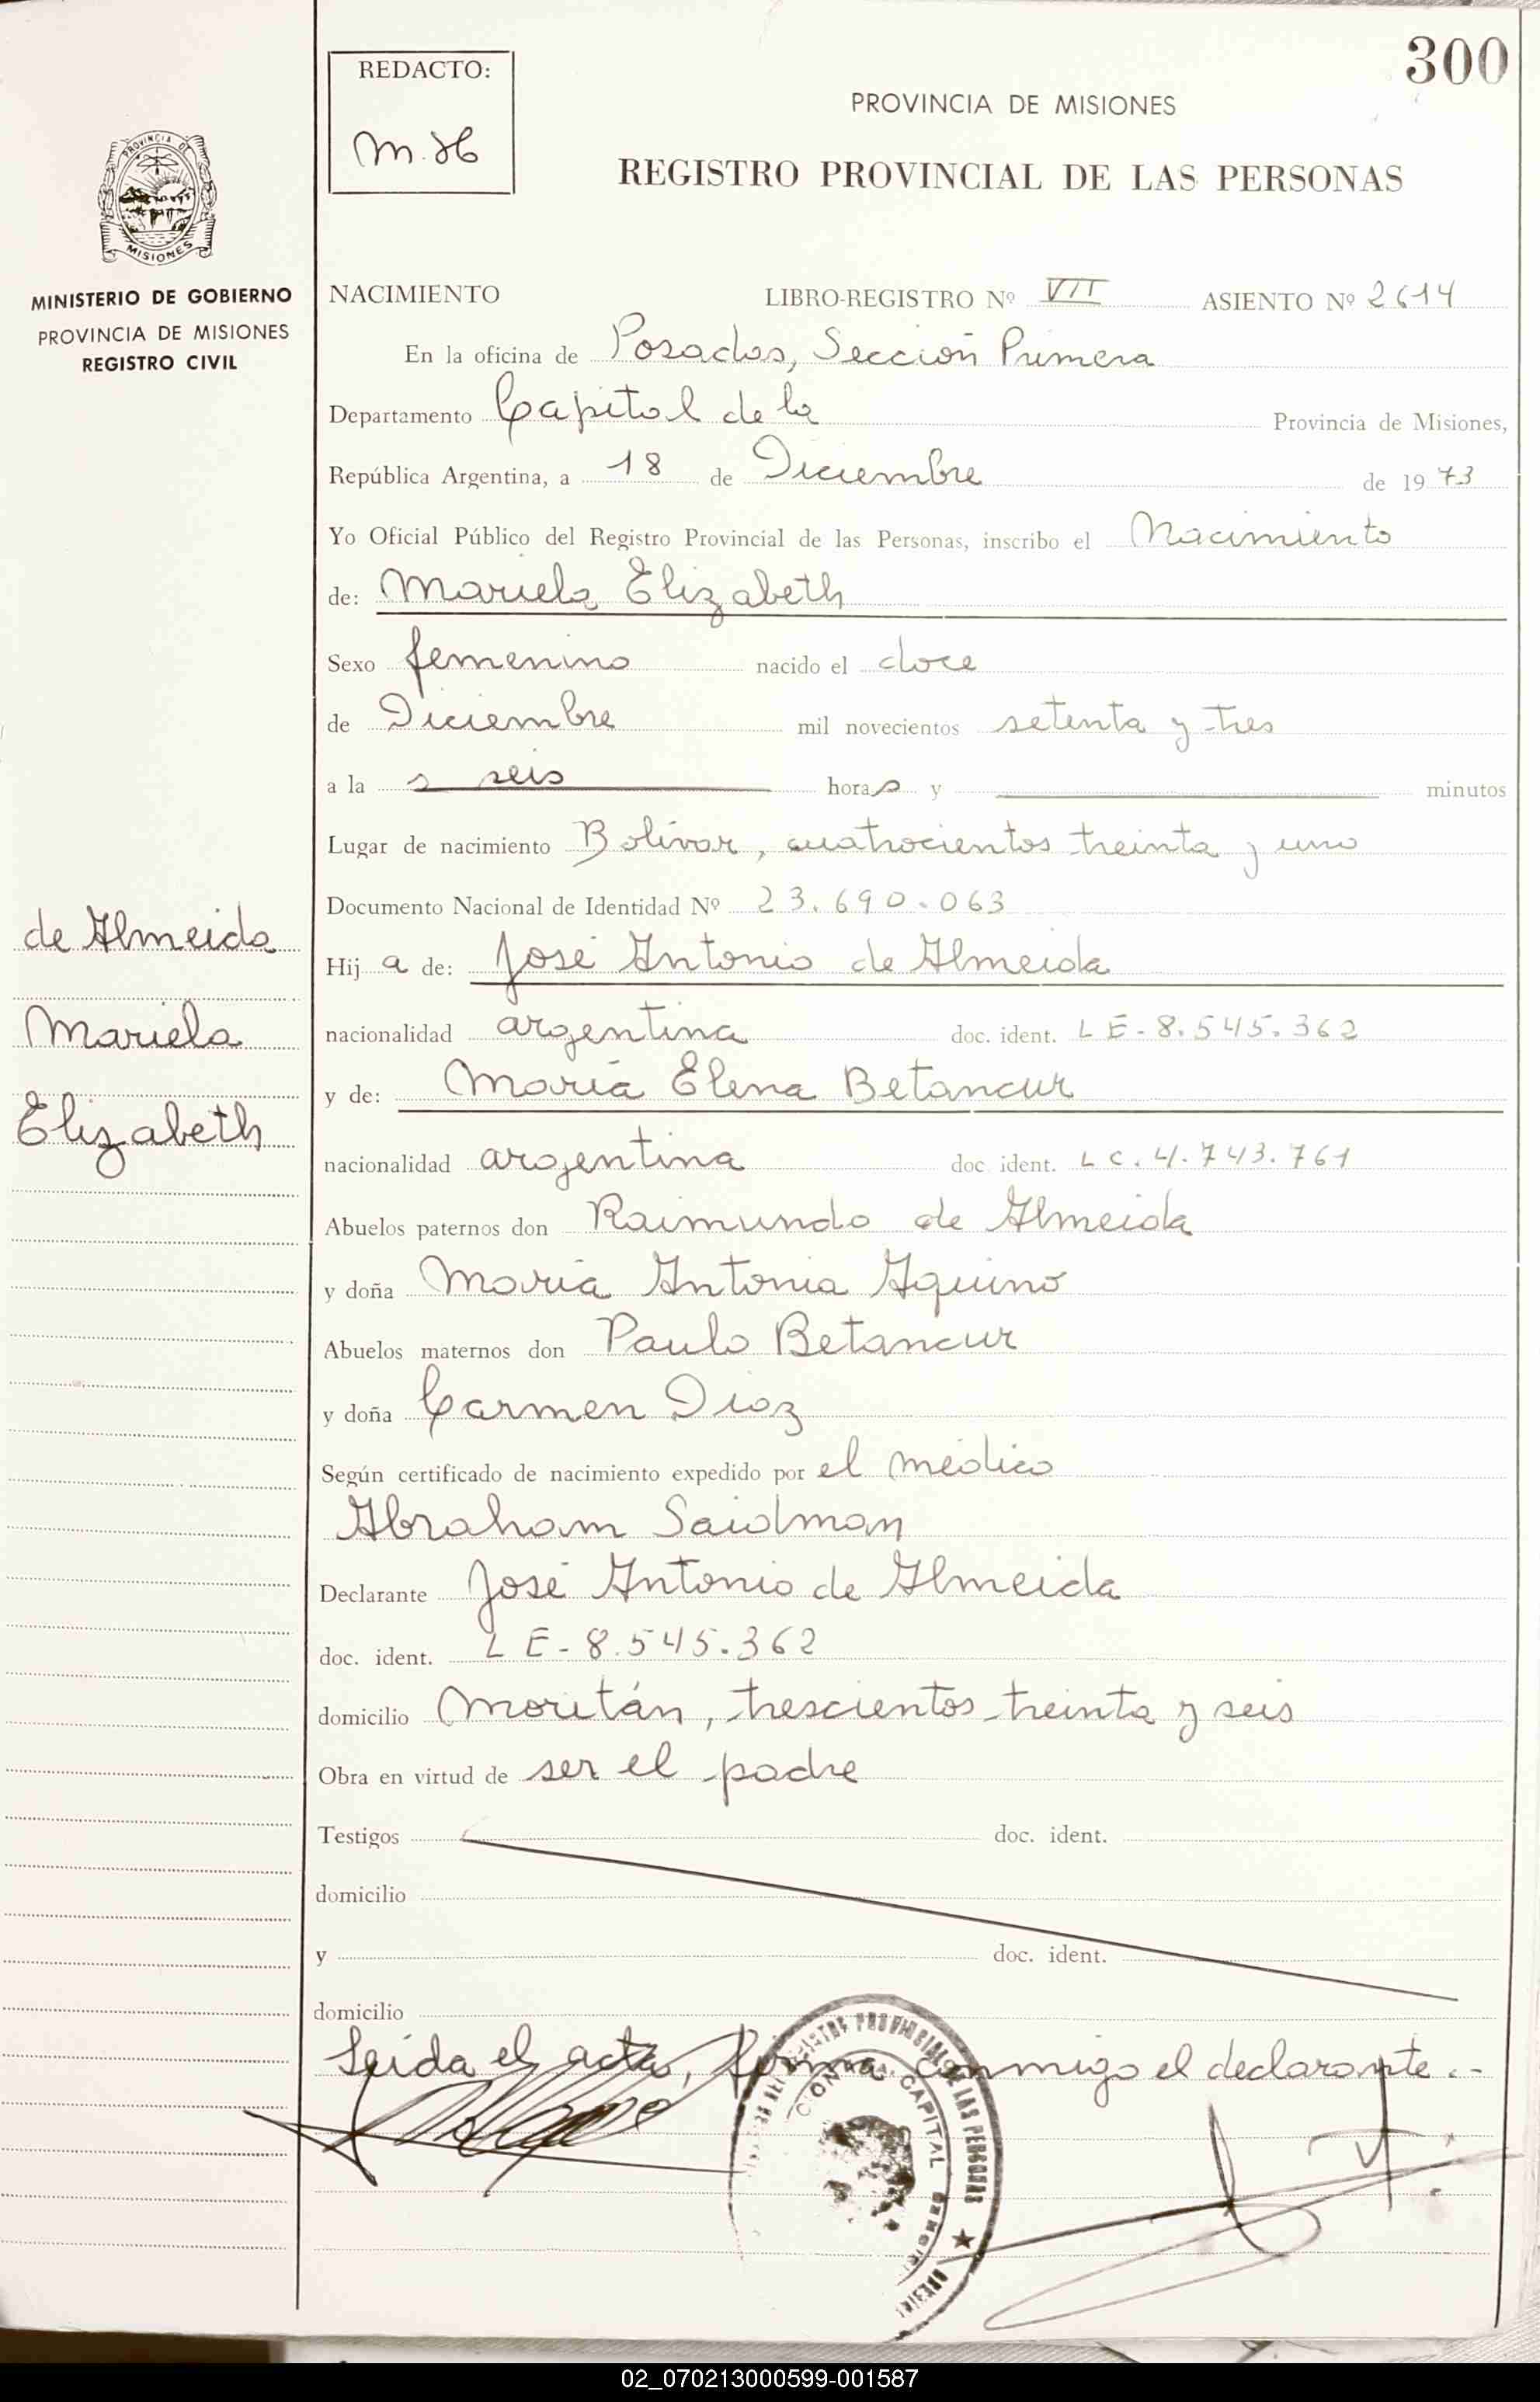 300
REDACTO:
PROVINCIA DE MISIONES
REGISTRO PROVINCIAL DE LAS PERSONAS
PROVINCIA DE
MISIONES
MINISTERIO DE GOBIERNO
PROVINCIA DE MISIONES
REGISTRO CIVIL
NACIMIENTO LIBRO-REGISTRO Nº VII ASIENTO Nº 2614
En la oficina de Posadas, Sección Primera
Departamento Capital de la Provincia de Misiones,
República Argentina, a 18 de Diciembre de 1973
Yo Oficial Público del Registro Provincial de las Personas, inscribo el Nacimiento
de: Mariela Elizabeth
Sexo femenino nacido el doce
de Diciembre mil novecientos setenta y tres
a la s seis horas y minutos
Lugar de nacimiento Bolívar, cuatrocientos treinta y uno
Documento Nacional de Identidad Nº 23.690.063
de Almeida
Mariela
Elizabeth
Hij a de: José Antonio de Almeida
nacionalidad argentina doc. ident. LE-8.545.362
y de: María Elena Betancur
nacionalidad argentina doc. ident. LC. 4.743.761
Abuelos paternos don Raimundo de Almeida
y doña María Antonia Aquino
Abuelos maternos don Paulo Betancur
y doña Carmen Diaz
Según certificado de nacimiento expedido por el médico
Abraham Saidman
Declarante José Antonio de Almeida
doc. ident. LE-8.545.362
domicilio Moritán, trescientos treinta y seis
Obra en virtud de ser el padre
Testigos doc. ident.
domicilio
y doc. ident.
domicilio
Leída el acta, firma conmigo el declarante.-
PROVINCIAL DE LAS PERSONAS
CAPITAL
02_070213000599-001587